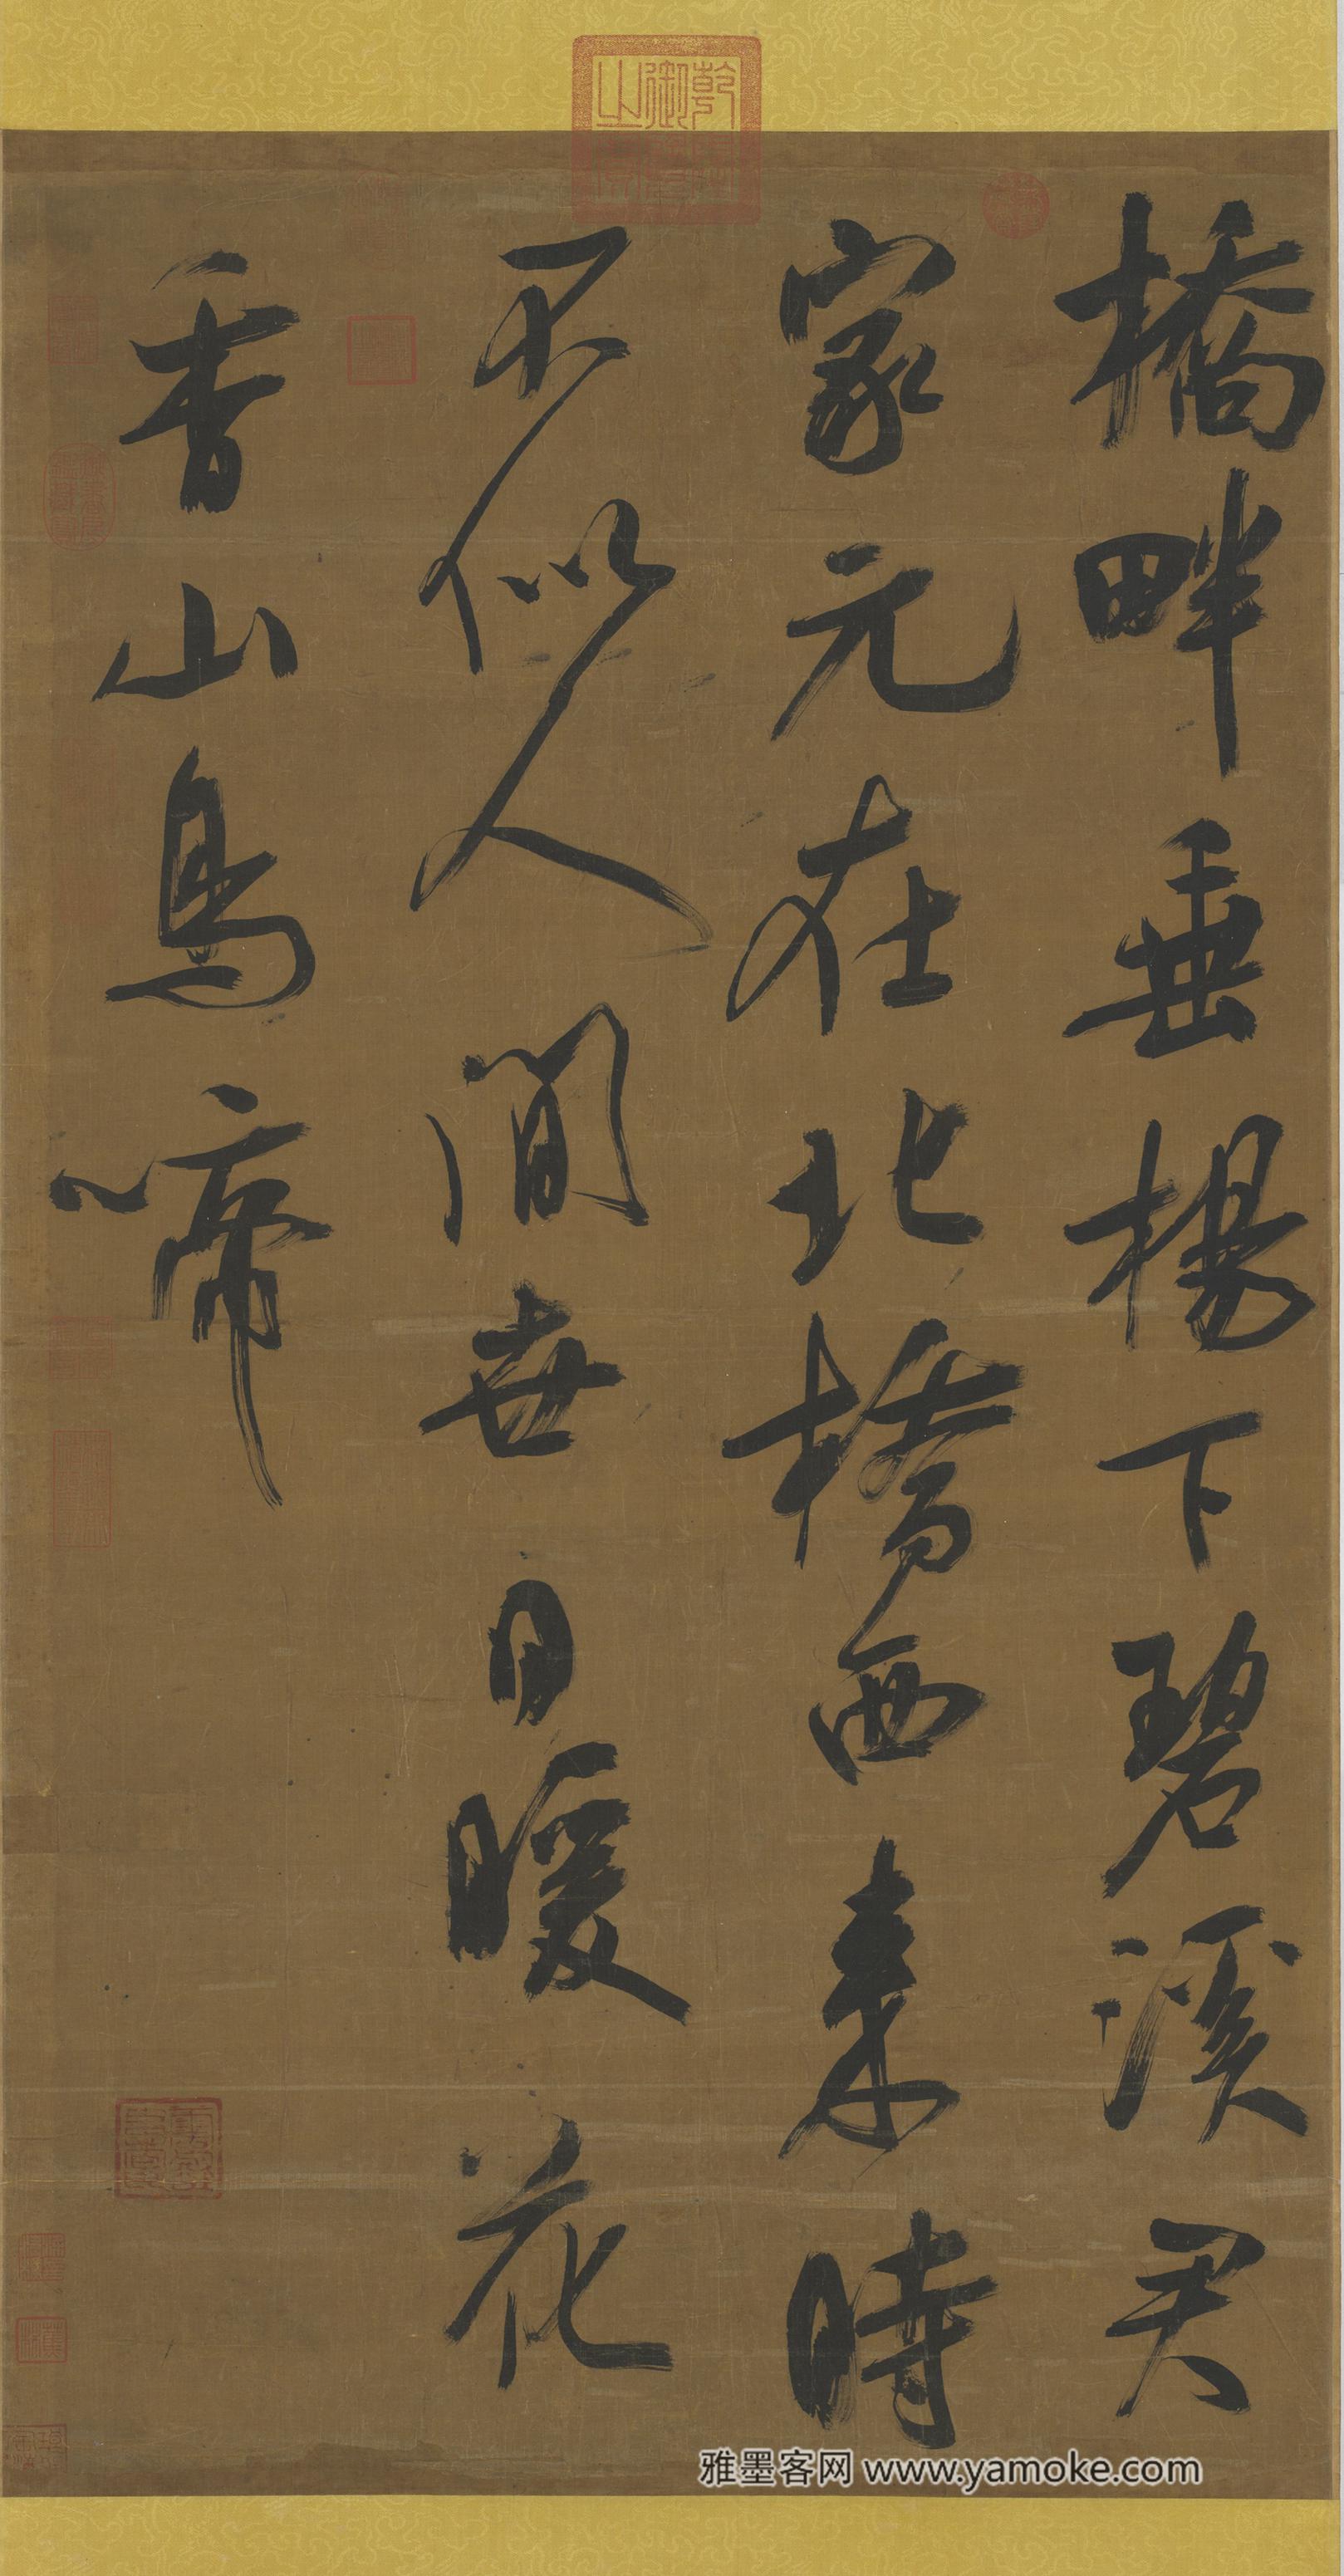 橋畔垂楊下碧溪君
家元在北橋西來時
不似人間世日暖花
香山鳥啼
雅墨客网 www.yamoke.com